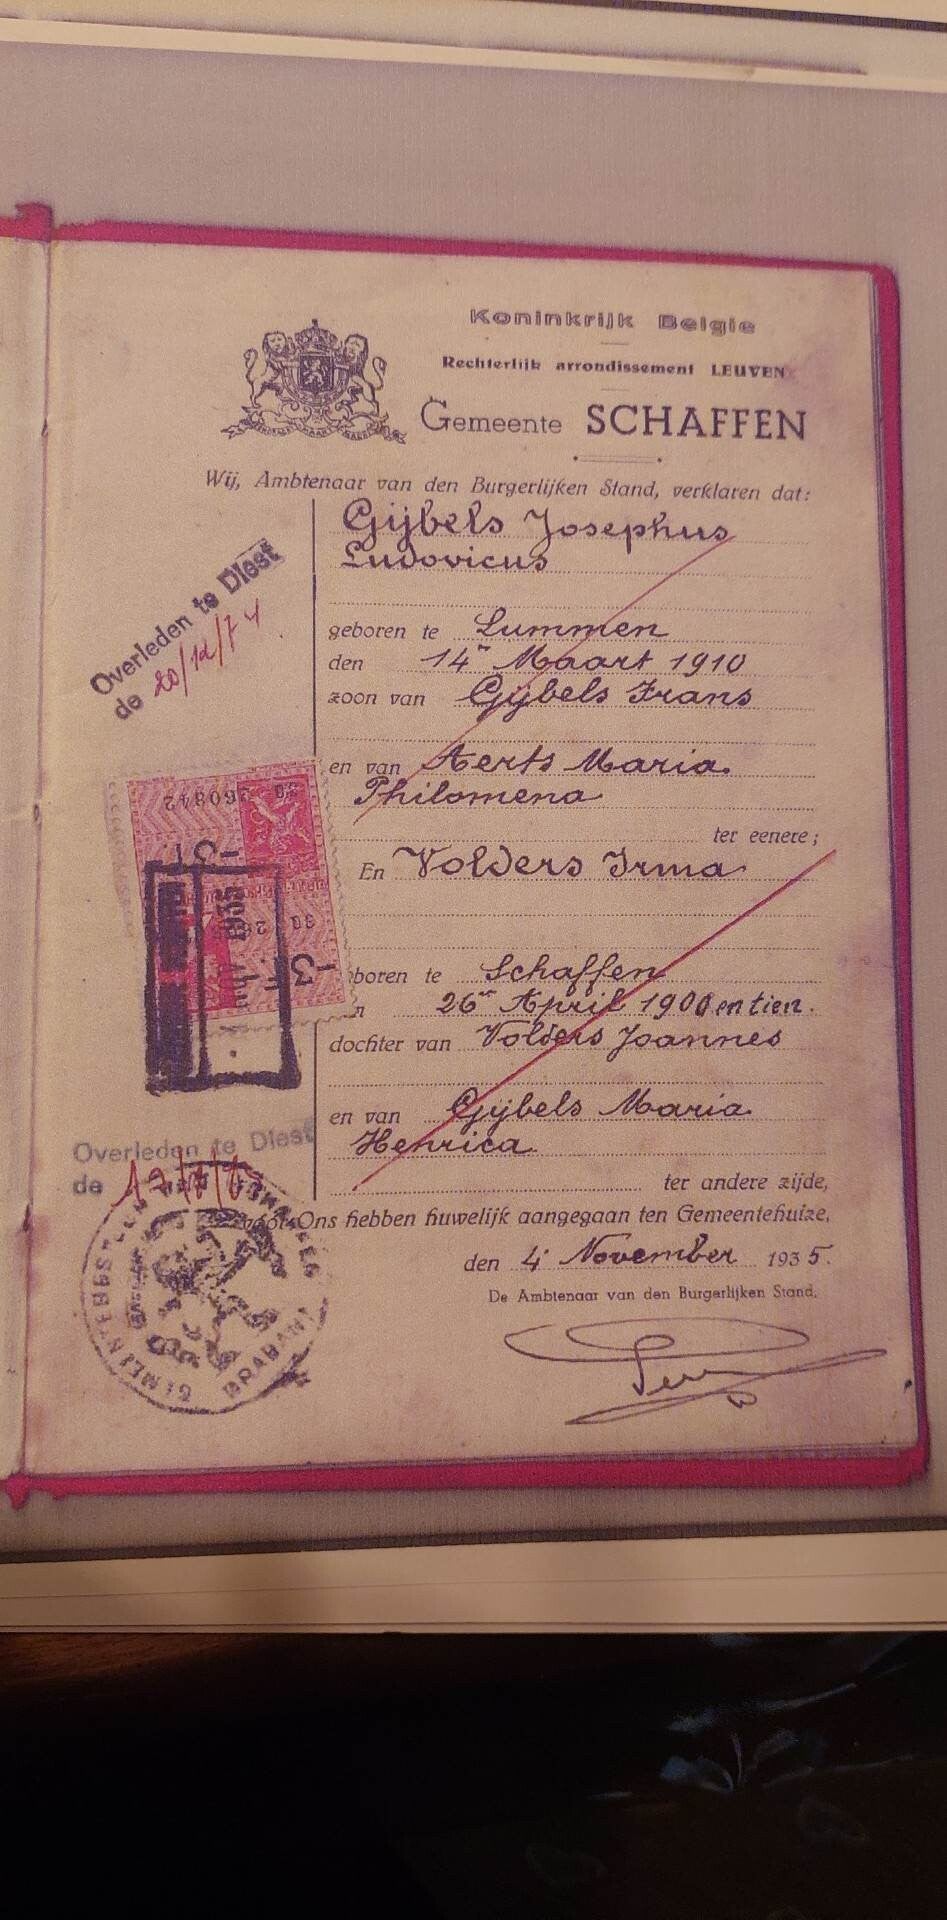 Koninkrijk Belgie
Rechterlijk arrondissement LEUVEN
Gemeente SCHAFFEN
Wij, Ambtenaar van den Burgerlijken Stand, verklaren dat:
Gijbels Josephus
Ludovicus
Overleden te Diest
de 20/12/74
geboren te Lummen
den 14n Maart 1910
zoon van Gijbels Frans
en van Aerts Maria
Philomena
ter eenere;
260842
En Volders Irma
boren te Schaffen
26n April 1900 en tien.
dochter van Volders Joannes
en van Gijbels Maria
Henrica
Overleden te Diest
de 17/
ter andere zijde,
voor Ons hebben huwelijk aangegaan ten Gemeentehuize,
den 4n November 1935.
De Ambtenaar van den Burgerlijken Stand,
GEMEENTEBESTUUR
BRABANT